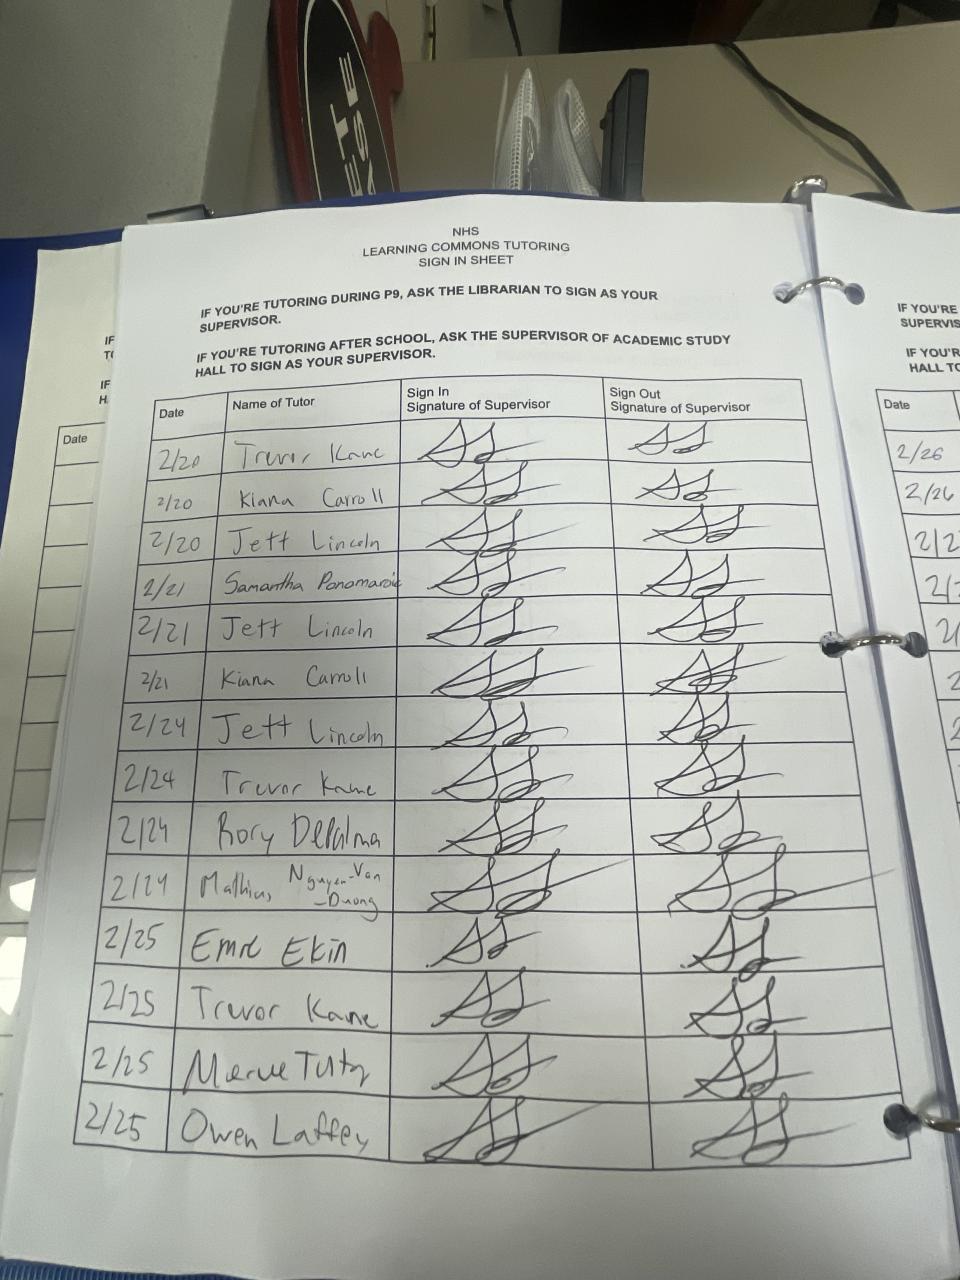 NHS
LEARNING COMMONS TUTORING
SIGN IN SHEET
IF YOU'RE TUTORING DURING P9, ASK THE LIBRARIAN TO SIGN AS YOUR
SUPERVISOR.
IF YOU'RE TUTORING AFTER SCHOOL, ASK THE SUPERVISOR OF ACADEMIC STUDY
HALL TO SIGN AS YOUR SUPERVISOR.
Date Name of Tutor Sign In Sign Out
Signature of Supervisor Signature of Supervisor
2/20 Trevor Kane
2/20 Kiana Carroll
2/20 Jett Lincoln
2/21 Samantha
2/21 Jett Lincoln
2/21 Kiana Carroll
2/24 Jett Lincoln
2/24 Trevor Kane
2/24 Rory DePalma
2/24 Mathias Nguyen-Van
-Duong
2/25 Emre Ekin
2/25 Trevor Kane
2/25 Merve
2/25 Owen Laffey
Date
IF YOU'RE
HALL TO
Date
2/26
2/26